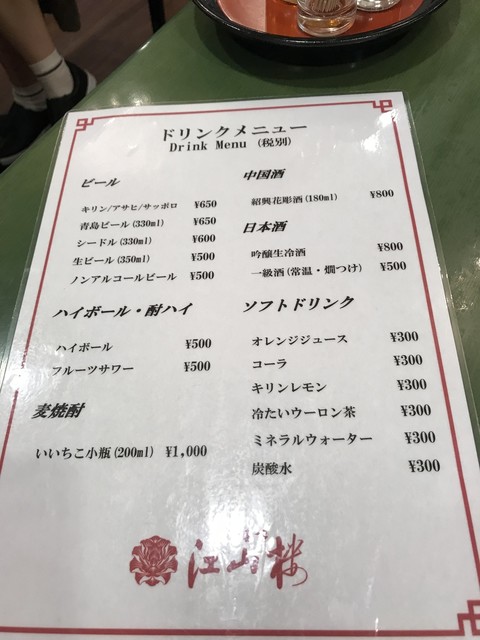 ドリンクメニュー
Drink Menu (税別)
ビール
キリン/アサヒ/サッポロ ¥650
青島ビール(330ml) ¥650
シードル(330ml) ¥600
生ビール(350ml) ¥500
ノンアルコールビール ¥500
ハイボール・酎ハイ
ハイボール ¥500
フルーツサワー ¥500
麦焼酎
いいちこ小瓶(200ml) ¥1,000
中国酒
紹興花彫酒(180ml) ¥800
日本酒
吟醸生冷酒 ¥800
一級酒(常温・燗つけ) ¥500
ソフトドリンク
オレンジジュース ¥300
コーラ ¥300
キリンレモン ¥300
冷たいウーロン茶 ¥300
ミネラルウォーター ¥300
炭酸水 ¥300
江山楼